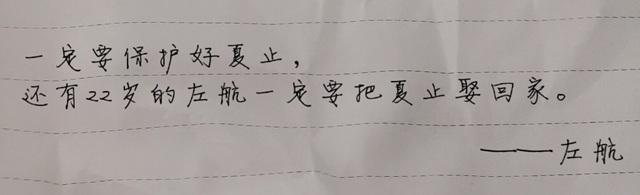 一定要保护好夏止，
还有22岁的左航一定要把夏止娶回家。
——左航